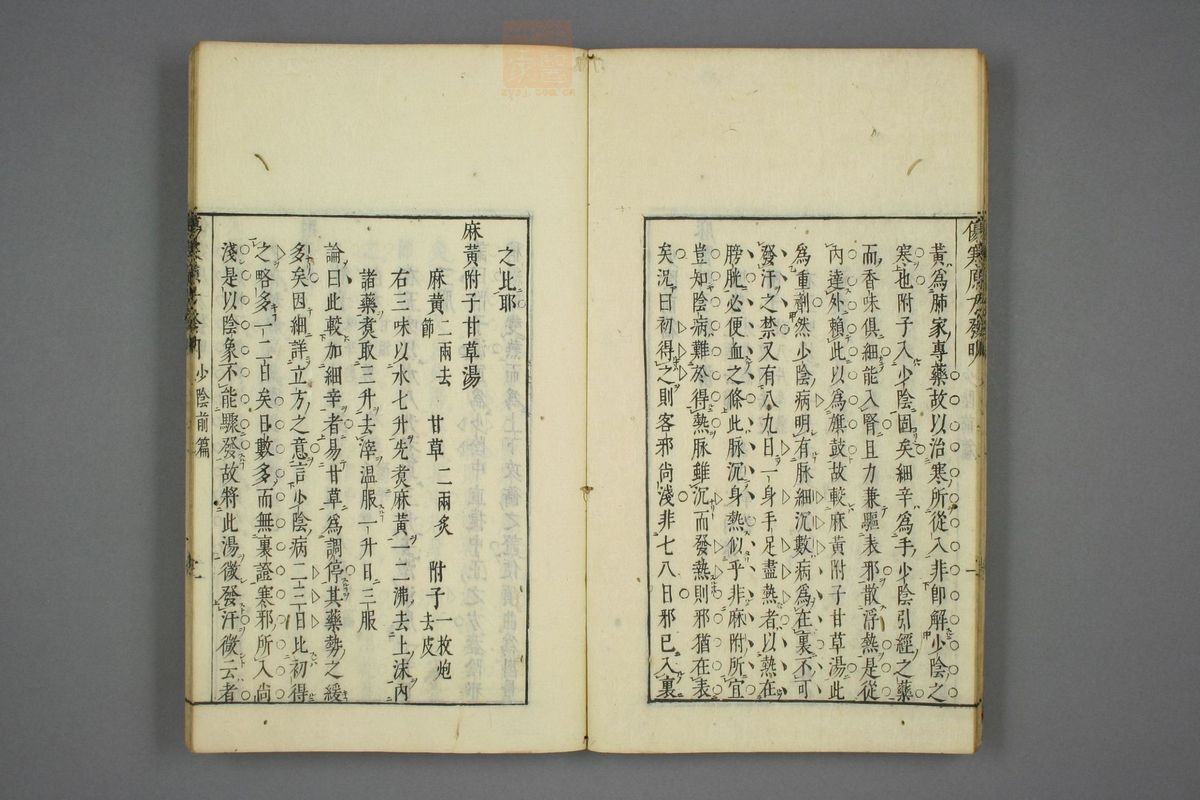 黃為肺家專藥故以治寒所從入非即解少陰之
寒也附子入少陰固矣細辛為手少陰引經之藥
而香味俱細能入腎且力兼驅表邪散浮熱是從
內達外賴此以為旗鼓故較麻黃附子甘草湯此
為重劑然少陰病明有脈細沉數病為在裏不可
發汗之禁又有八九日一身手足盡熱者以熱在
膀胱必便血之條此脈沉身熱似乎非麻附所宜
豈知陰病難於得熱脈雖沉而發熱則邪猶在表
矣況曰初得之則客邪尚淺非七八日邪已入裏
之比耶
麻黃附子甘草湯
麻黃二兩去節 甘草二兩炙 附子一枚炮去皮
右三味以水七升先煑麻黃一二沸去上沫內
諸藥煑取三升去滓溫服一升日三服
論曰此較加細辛者易甘草為調停其藥勢之緩
多矣因細詳立方之意言少陰病二三日比初得
之略多一二日矣日數多而無裏證寒邪所入尚
淺是以陰象不能驟發故將此湯微發汗微云者
少陰前篇